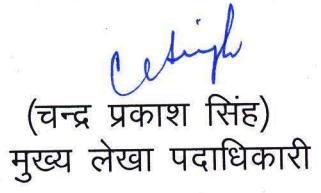 (चन्द्र प्रकाश सिंह)
मुख्य लेखा पदाधिकारी